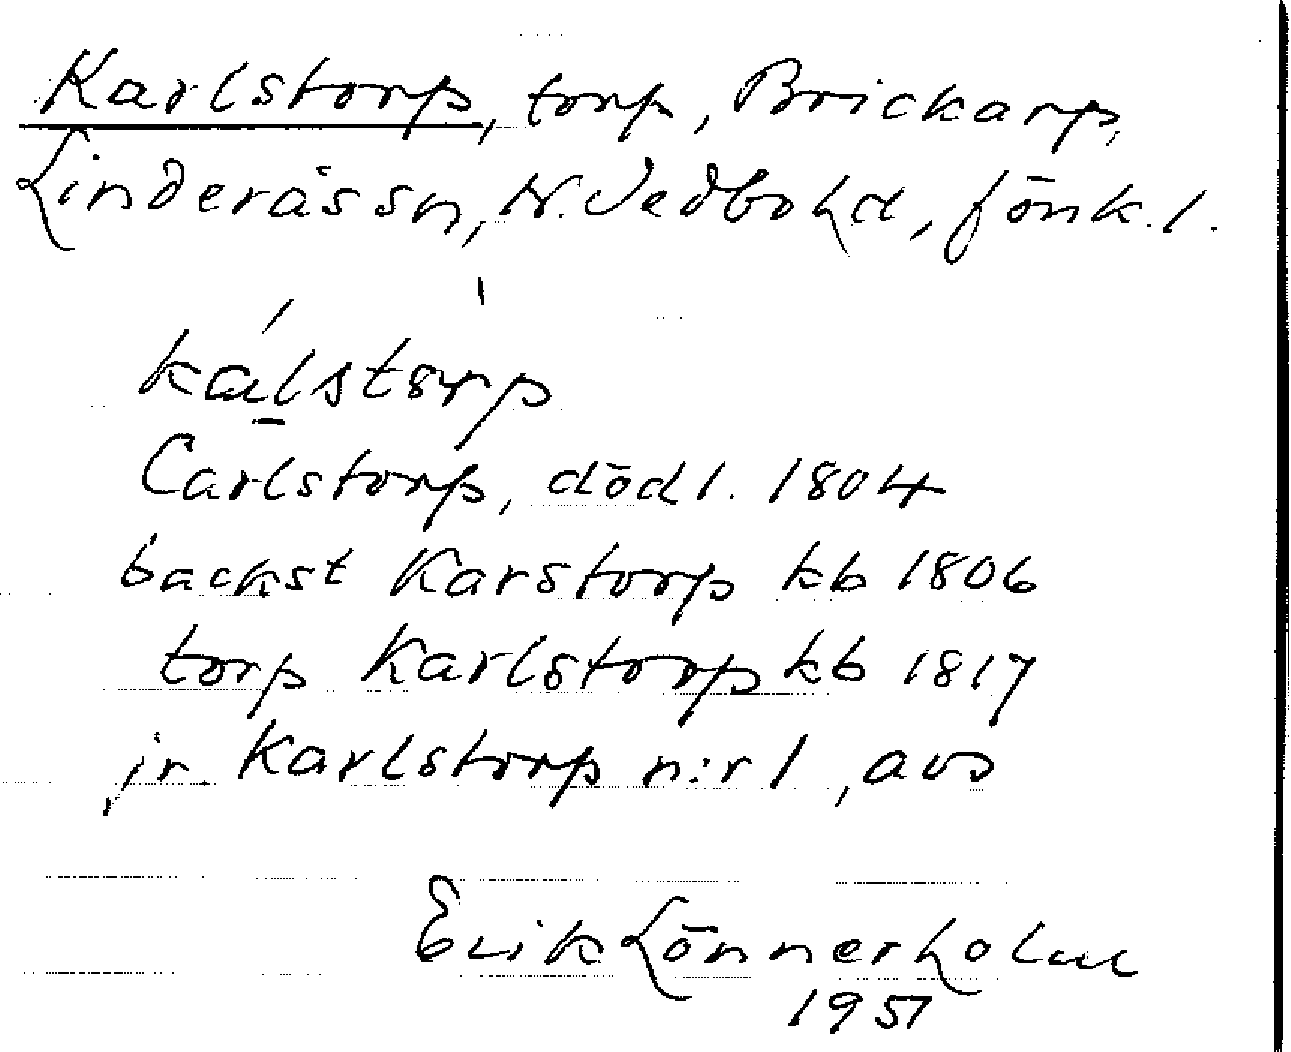 Karlstorp, torp, Brickarp,
Linderås sn, N. Vedbo hd, Jönk. l.
kálstorp
Carlstorp, dödl. 1804
backst Karstorp kb 1806
torp Karlstorp kb 1817
jr Karlstorp n:r 1, avs
Erik Lönnerholm
1951